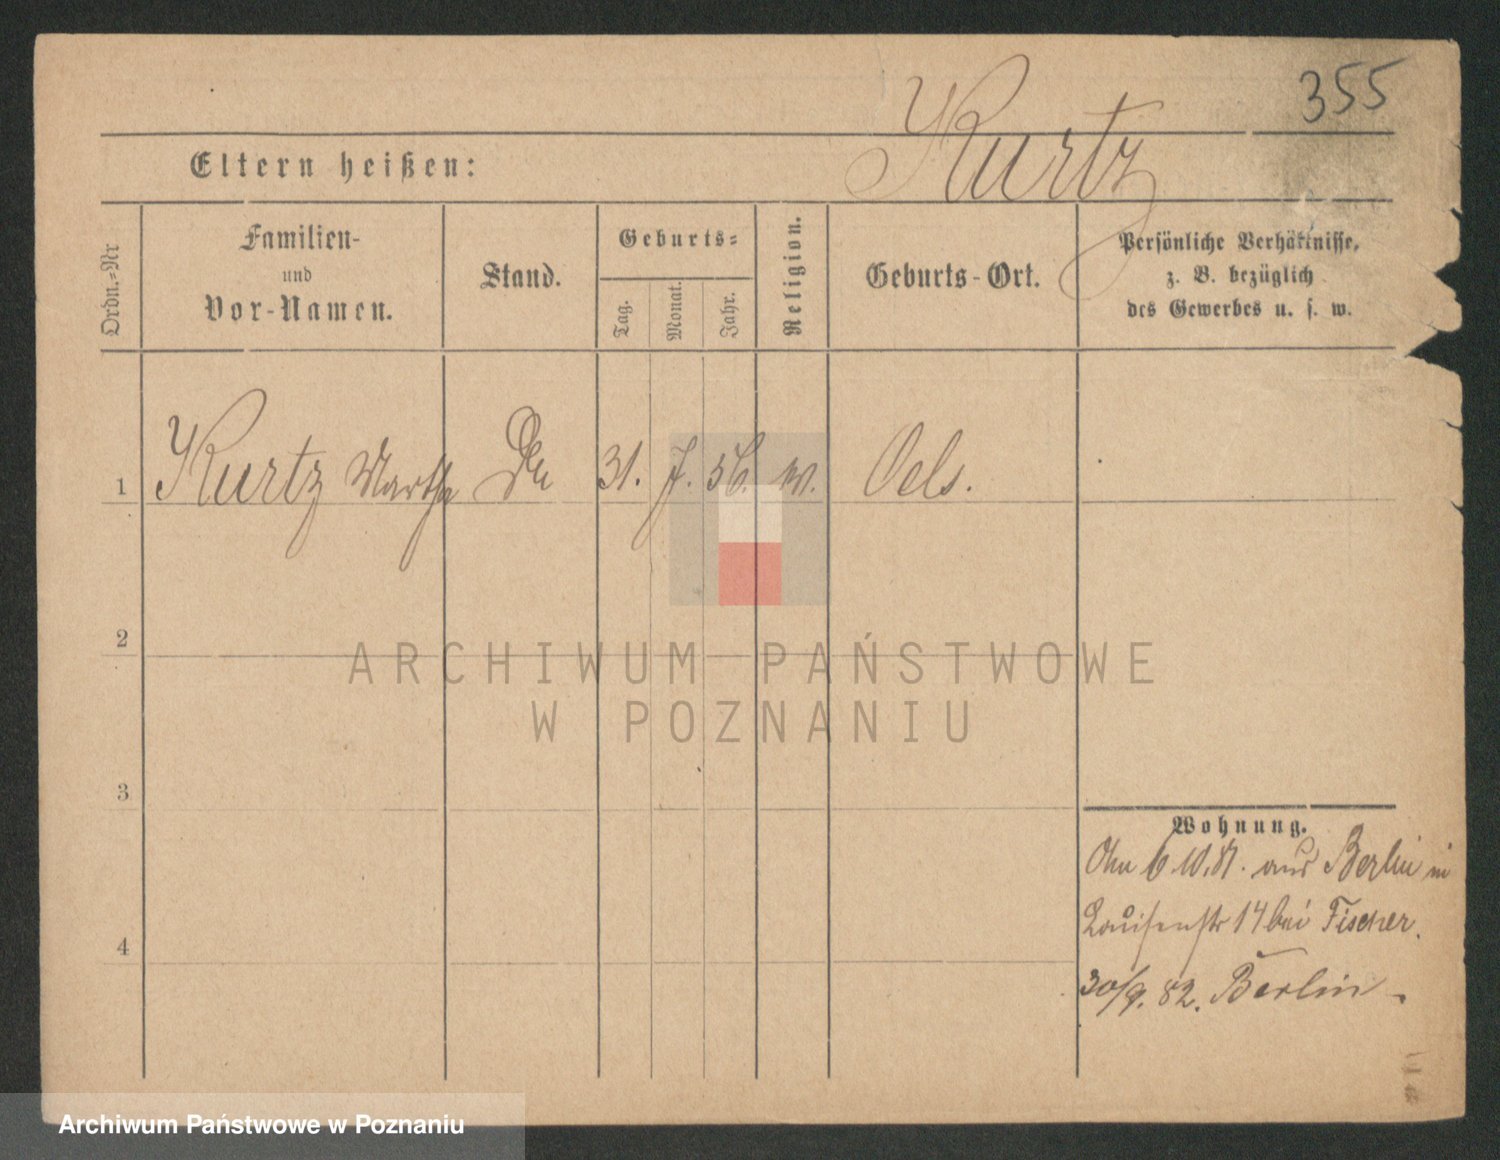 355
Kurtz
Eltern heißen:
Ordn.-Nr
Familien-
und
Vor-Namen.
Stand.
Geburts-
Tag.
Monat.
Jahr.
Religion.
Geburts-Ort.
Persönliche Verhältnisse,
z. B. bezüglich
des Gewerbes u. s. w.
1 Kurtz Martha 31. 7. 56. Oels.
2
3
4
ARCHIWUM PAŃSTWOWE
W POZNANIU
Wohnung.
6.10.81. aus Berlin in
Louisenstr 14 bei Fischer.
30/9. 82. Berlin
Archiwum Państwowe w Poznaniu